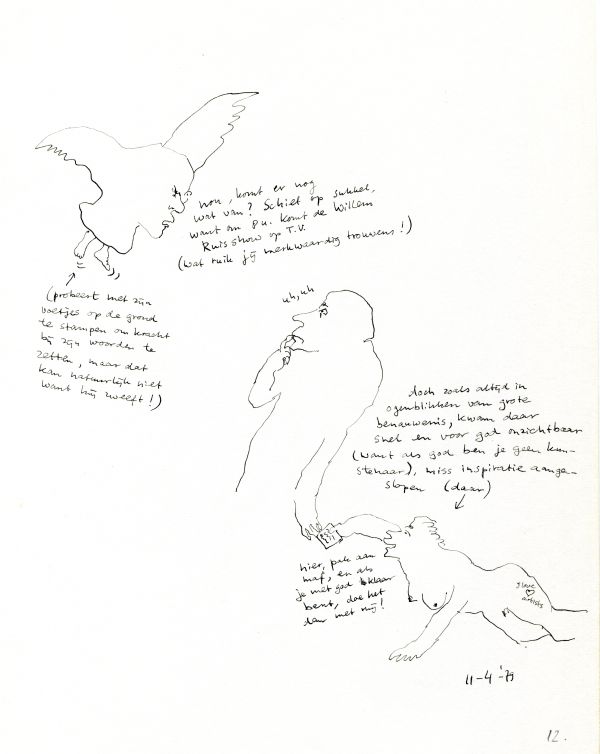 nou, komt er nog
wat van? Schiet op sukkel,
want om 8 u. komt de Willem
Ruis show op T.V.
(wat ruik jij merkwaardig trouwens!)
(probeert met zijn
voetjes op de grond
te stampen om kracht
bij zijn woorden te
zetten, maar dat
kan natuurlijk niet
want hij zweeft!)
uh, uh
doch zoals altijd in
ogenblikken van grote
benauwenis, kwam daar
snel en voor god onzichtbaar
(want als god ben je geen kun-
stenaar), miss inspiratie aange-
slopen (daar)
hier, pak aan
maf, en als
je met god klaar
bent, doe het
dan met mij!
I love
artists
11-4-'79
12.